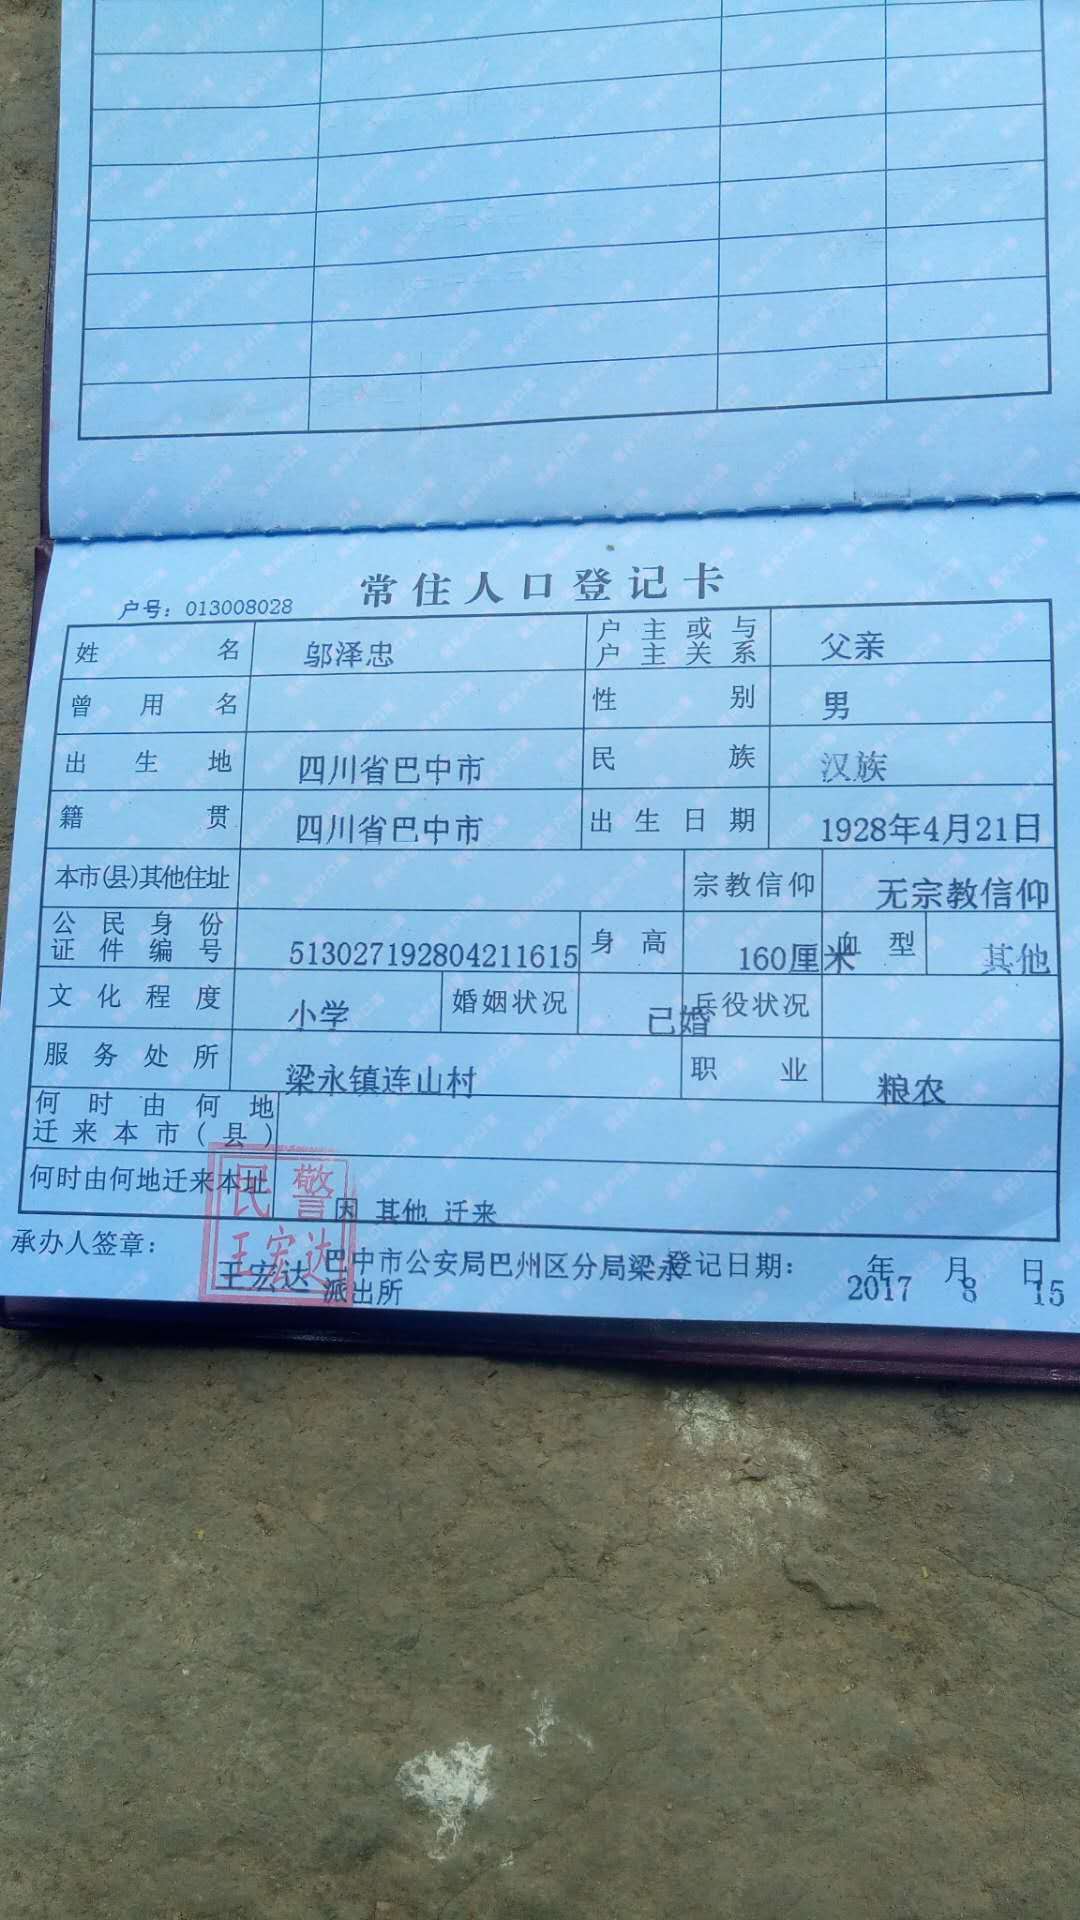 常住人口登记卡
户号：013008028
姓名 邬泽忠 户主或与户主关系 父亲
曾用名 性别 男
出生地 四川省巴中市 民族 汉族
籍贯 四川省巴中市 出生日期 1928年4月21日
本市(县)其他住址 宗教信仰 无宗教信仰
公民身份证件编号 513027192804211615 身高 160厘米 血型 其他
文化程度 小学 婚姻状况 已婚 兵役状况
服务处所 梁永镇连山村 职业 粮农
何时由何地迁来本市(县)
何时由何地迁来本址 因 其他 迁来
民警
王宏达
承办人签章： 王宏达 巴中市公安局巴州区分局梁永派出所 登记日期： 2017年8月15日